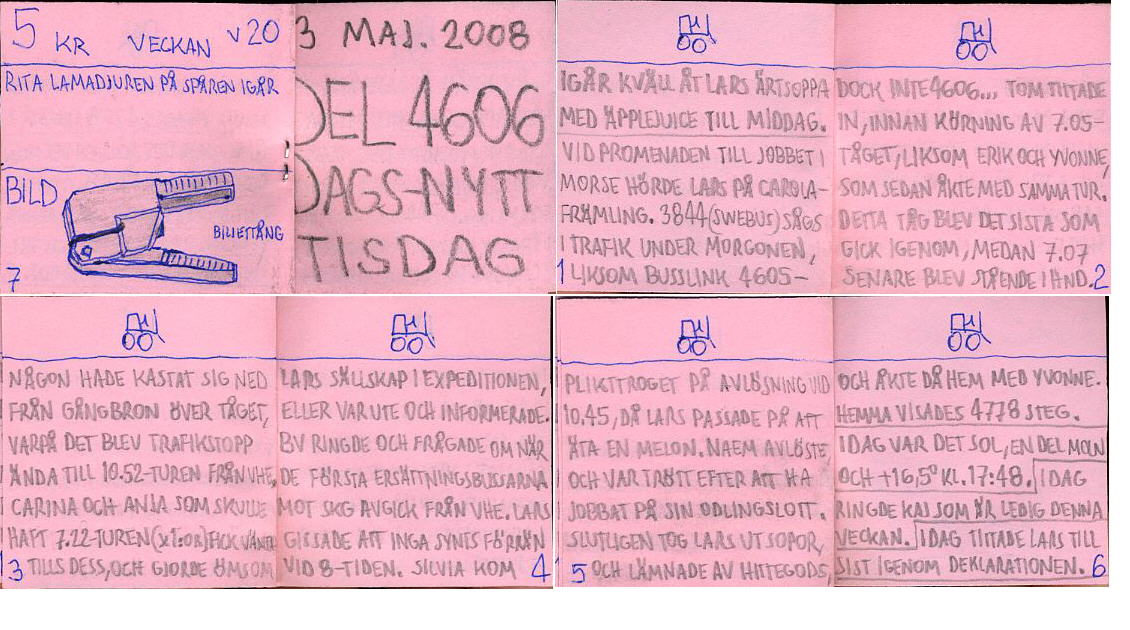 5 KR VECKAN V20
RITA LAMADJUREN PÅ SPÅREN IGÅR
BILD
BILJETTÅNG
7
3 MAJ. 2008
DEL 4606
DAGS-NYTT
TISDAG
IGÅR KVÄLL ÅT LARS ÄRTSOPPA
MED ÄPPLEJUICE TILL MIDDAG.
VID PROMENADEN TILL JOBBET I
MORSE HÖRDE LARS PÅ CAROLA-
FRÄMLING. 3844 (SWEBUS) SÅGS
I TRAFIK UNDER MORGONEN,
1 LIKSOM BUSSLINK 4605-
DOCK INTE 4606... TOM TITTADE
IN, INNAN KÖRNING AV 7.05-
TÅGET, LIKSOM ERIK OCH YVONNE,
SOM SEDAN ÅKTE MED SAMMA TUR.
DETTA TÅG BLEV DET SISTA SOM
GICK IGENOM, MEDAN 7.07
SENARE BLEV STÅENDE I HND. 2
NÅGON HADE KASTAT SIG NED
FRÅN GÅNGBRON ÖVER TÅGET,
VARPÅ DET BLEV TRAFIKSTOPP
ÄNDA TILL 10.52-TUREN FRÅN VHE.
CARINA OCH ANJA SOM SKULLE
HAFT 7.22-TUREN FICK VÄNTA
3 TILLS DESS, OCH GJORDE ÖMSOM
LARS SÄLLSKAP I EXPEDITIONEN,
ELLER VAR UTE OCH INFORMERADE.
BV RINGDE OCH FRÅGADE OM NÄR
DE FÖRSTA ERSÄTTNINGSBUSSARNA
MOT SKG AVGICK FRÅN VHE. LARS
GISSADE ATT INGA SYNTS FÖRRÄN
VID 8-TIDEN. SILVIA KOM 4
PLIKTTROGET PÅ AVLÖSNING VID
10.45, DÅ LARS PASSADE PÅ ATT
ÄTA EN MELON. NAEM AVLÖSTE
OCH VAR TRÖTT EFTER ATT HA
JOBBAT PÅ SIN ODLINGSLOTT.
SLUTLIGEN TOG LARS UT SOPOR,
5 OCH LÄMNADE AV HITTEGODS,
OCH ÅKTE DÅ HEM MED YVONNE.
HEMMA VISADES 4778 STEG.
IDAG VAR DET SOL, EN DEL MOLN
OCH +16,5° KL. 17:48. IDAG
RINGDE KAJ SOM ÄR LEDIG DENNA
VECKAN. IDAG TITTADE LARS TILL
SIST IGENOM DEKLARATIONEN. 6